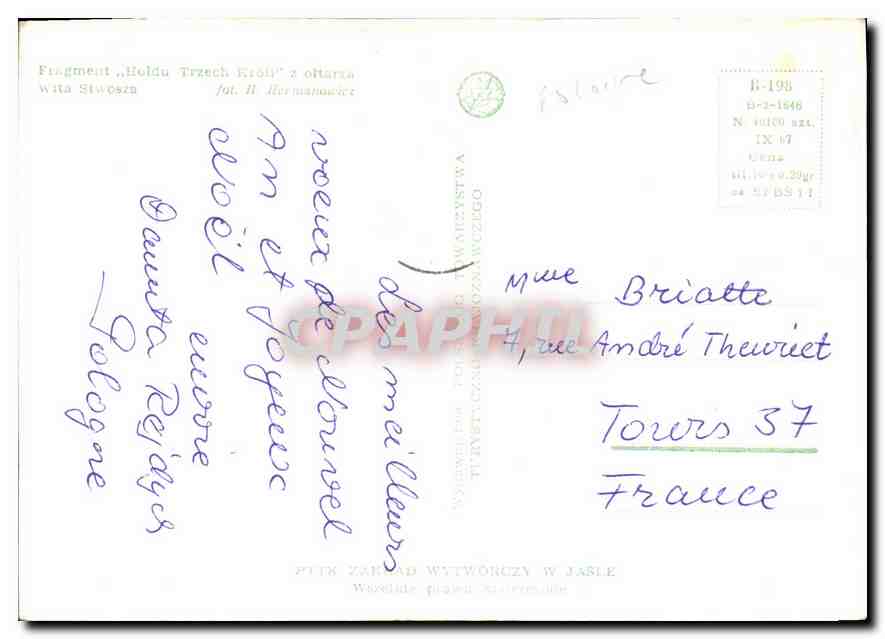 Fragment „Hołdu Trzech Króli" z ołtarza
Wita Stwosza fot. H. Hermanowicz
Pologne
B-198
B-3-1646
N. 40100 szt.
IX 67
Cena
zł 1.10 + 0.20 gr
TOWARZYSTWA
TURYSTYCZNO-KRAJOZNAWCZEGO
Les meilleurs
voeux de Nouvel
An et Joyeux
Noël
envoie
Danuta Rejdych
Pologne
Mme Briatte
7, rue André Theuriet
Tours 37
France
CPAPHIL
PTTK ZAKŁAD WYTWÓRCZY W JAŚLE
Wszelkie prawa zastrzeżone